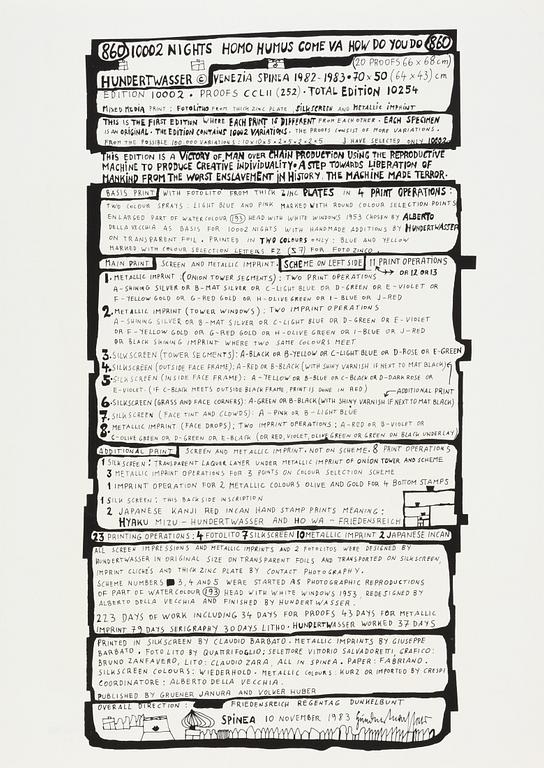 860 10002 NIGHTS HOMO HUMUS COME VA HOW DO YOU DO 860
(20 PROOFS 66 x 68 cm)
HUNDERTWASSER © VENEZIA SPINEA 1982-1983 • 70 x 50 (64 x 43) cm
EDITION 10002 • PROOFS CCLII (252) • TOTAL EDITION 10254
MIXED MEDIA PRINT: FOTOLITHO FROM THICK ZINC PLATE, SILKSCREEN AND METALLIC IMPRINT
THIS IS THE FIRST EDITION WHERE EACH PRINT IS DIFFERENT FROM EACH OTHER. EACH SPECIMEN
IS AN ORIGINAL. THE EDITION CONTAINS 10002 VARIATIONS. THE PROOFS CONSIST OF MORE VARIATIONS.
FROM THE POSSIBLE 100.000 VARIATIONS: I HAVE SELECTED ONLY 10002
THIS EDITION IS A VICTORY OF MAN OVER CHAIN PRODUCTION USING THE REPRODUCTIVE
MACHINE TO PRODUCE CREATIVE INDIVIDUALITY • A STEP TOWARDS LIBERATION OF
MANKIND FROM THE WORST ENSLAVEMENT IN HISTORY. THE MACHINE MADE TERROR.
BASIS PRINT WITH FOTOLITO FROM THICK ZINC PLATES IN 4 PRINT OPERATIONS:
TWO COLOUR SPRAYS: LIGHT BLUE AND PINK MARKED WITH ROUND COLOUR SELECTION POINTS
ENLARGED PART OF WATERCOLOUR (193) HEAD WITH WHITE WINDOWS 1953 CHOSEN BY ALBERTO
DELLA VECCHIA AS BASIS FOR 10002 NIGHTS WITH HANDMADE ADDITIONS BY HUNDERTWASSER
ON TRANSPARENT FOIL. PRINTED IN TWO COLOURS ONLY: BLUE AND YELLOW
MARKED WITH COLOUR SELECTION LETTERS FZ (57) FOR FOTOZINCO
MAIN PRINT SCREEN AND METALLIC IMPRINT. SCHEME ON LEFT SIDE 11 PRINT OPERATIONS
OR 12 OR 13
1. METALLIC IMPRINT: (ONION TOWER SEGMENTS): TWO PRINT OPERATIONS
A-SHINING SILVER OR B-MAT SILVER OR C-LIGHT BLUE OR D-GREEN OR E-VIOLET OR
F-YELLOW GOLD OR G-RED GOLD OR H-OLIVE GREEN OR I-BLUE OR J-RED
2. METALLIC IMPRINT (TOWER WINDOWS): TWO IMPRINT OPERATIONS
A-SHINING SILVER OR B-MAT SILVER OR C-LIGHT BLUE OR D-GREEN OR E-VIOLET
OR F-YELLOW GOLD OR G-RED GOLD OR H-OLIVE GREEN OR I-BLUE OR J-RED
OR BLACK SHINING IMPRINT WHERE TWO SAME COLOURS MEET
3. SILKSCREEN (TOWER SEGMENTS): A-BLACK OR B-YELLOW OR C-LIGHT BLUE OR D-ROSE OR E-GREEN
4. SILKSCREEN (OUTSIDE FACE FRAME): A-RED OR B-BLACK (WITH SHINY VARNISH IF NEXT TO MAT BLACK)
5. SILKSCREEN (INSIDE FACE FRAME): A-YELLOW OR B-BLUE OR C-BLACK OR D-DARK ROSE OR
E-VIOLET. (IF C-BLACK MEETS OUTSIDE BLACK FRAME, PRINT IS DONE IN RED) ADDITIONAL PRINT
6. SILKSCREEN (GRASS AND FACE CORNERS): A-GREEN OR B-BLACK (WITH SHINY VARNISH IF NEXT TO MAT BLACK)
7. SILKSCREEN (FACE TINT AND CLOWDS): A-PINK OR B-LIGHT BLUE
8. METALLIC IMPRINT (FACE DROPS); TWO IMPRINT OPERATIONS; A-RED OR B-VIOLET OR
C-OLIVE GREEN OR D-GREEN OR E-BLACK (OR RED, VIOLET, OLIVE GREEN OR GREEN ON BLACK UNDERLAY)
ADDITIONAL PRINT SCREEN AND METALLIC IMPRINT. NOT ON SCHEME. 8 PRINT OPERATIONS
1 SILKSCREEN: TRANSPARENT LAQUER LAYER UNDER METALLIC IMPRINT OF ONION TOWER AND SCHEME
3 METALLIC IMPRINT OPERATIONS FOR 3 POINTS ON COLOUR SELECTION SCHEME
1 IMPRINT OPERATION FOR 2 METALLIC COLOURS OLIVE AND GOLD FOR 4 BOTTOM STAMPS
1 SILK SCREEN: THIS BACKSIDE INSCRIPTION
2 JAPANESE KANJI RED INCAN HAND STAMP PRINTS MEANING:
HYAKU MIZU - HUNDERTWASSER AND HO WA - FRIEDENSREICH
23 PRINTING OPERATIONS; 4 FOTOLITO 7 SILKSCREEN 10 METALLIC IMPRINT 2 JAPANESE INCAN
ALL SCREEN IMPRESSIONS AND METALLIC IMPRINTS AND 2 FOTOLITOS WERE DESIGNED BY
HUNDERTWASSER IN ORIGINAL SIZE ON TRANSPARENT FOILS AND TRANSPORTED ON SILKSCREEN,
IMPRINT CLICHÉS AND THICK ZINC PLATE BY CONTACT PHOTOGRAPHY.
SCHEME NUMBERS 3, 4 AND 5 WERE STARTED AS PHOTOGRAPHIC REPRODUCTIONS
OF PART OF WATERCOLOUR (193) HEAD WITH WHITE WINDOWS 1953, REDESIGNED BY
ALBERTO DELLA VECCHIA AND FINISHED BY HUNDERTWASSER.
223 DAYS OF WORK INCLUDING 34 DAYS FOR PROOFS 43 DAYS FOR METALLIC
IMPRINT 79 DAYS SERIGRAPHY 30 DAYS LITHO. HUNDERTWASSER WORKED 37 DAYS
PRINTED IN SILKSCREEN BY CLAUDIO BARBATO. METALLIC IMPRINTS BY GIUSEPPE
BARBATO. FOTO LITO BY QUATTRIFOGLIO; SELETTORE VITTORIO SALVADORETTI, GRAFICO:
BRUNO ZANFAVERO, LITO: CLAUDIO ZARA, ALL IN SPINEA. PAPER: FABRIANO.
SILKSCREEN COLOURS: WIEDERHOLD. METALLIC COLOURS: KURZ OR IMPORTED BY CRESPI
COORDINATORE: ALBERTO DELLA VECCHIA.
PUBLISHED BY GRUENER JANURA AND VOLKER HUBER
OVERALL DIRECTION: FRIEDENSREICH REGENTAG DUNKELBUNT
SPINEA 10 NOVEMBER 1983